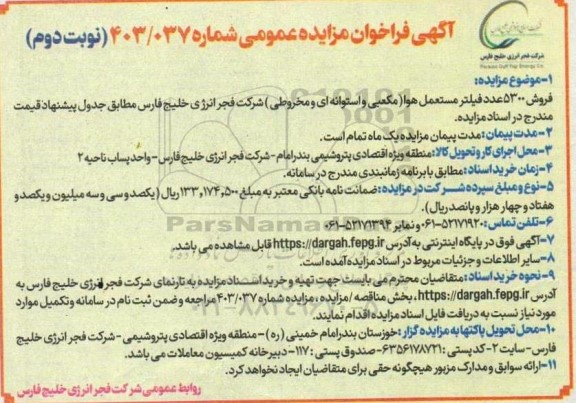 آگهی فراخوان مزایده عمومی شماره ۴۰۳/۰۳۷ (نوبت دوم)
شرکت فجر انرژی خلیج فارس
Persian Gulf Fajr Energy Co.
۱-موضوع مزایده:
فروش ۵۳۰۰عدد فیلتر مستعمل هوا(مکعبی و استوانه ای و مخروطی) شرکت فجر انرژی خلیج فارس مطابق جدول پیشنهاد قیمت
مندرج در اسناد مزایده.
۲-مدت پیمان: مدت پیمان مزایده یک ماه تمام است.
۳-محل اجرای کار و تحویل کالا: منطقه ویژه اقتصادی پتروشیمی بندرامام-شرکت فجر انرژی خلیج فارس-واحد پساب ناحیه ۲
۴-زمان خرید اسناد: مطابق با برنامه زمانبندی مندرج در سامانه.
۵-نوع و مبلغ سپرده شرکت در مزایده: ضمانت نامه بانکی معتبر به مبلغ ۱۳۳,۱۷۴,۵۰۰ ریال (یکصد و سی و سه میلیون و یکصد و
هفتاد و چهار هزار و پانصد ریال).
۶-تلفن تماس: ۵۲۱۷۱۹۲۰-۰۶۱ و نمابر ۵۲۱۷۱۳۹۴-۰۶۱
۷-آگهی فوق در پایگاه اینترنتی به آدرس https://dargah.fepg.ir قابل مشاهده می باشد.
۸-سایر اطلاعات و جزئیات مربوط در اسناد مزایده آمده است.
۹-نحوه خرید اسناد: متقاضیان محترم می بایست جهت تهیه و خرید اسناد مزایده به تارنمای شرکت فجر انرژی خلیج فارس به
آدرس https://dargah.fepg.ir، بخش مناقصه/مزایده، مزایده شماره ۴۰۳/۰۳۷ مراجعه و ضمن ثبت نام در سامانه و تکمیل موارد
مورد نیاز نسبت به دریافت فایل اسناد مزایده اقدام نمایند.
۱۰-محل تحویل پاکتها به مزایده گزار: خوزستان بندرامام خمینی (ره)-منطقه ویژه اقتصادی پتروشیمی-شرکت فجر انرژی خلیج
فارس-سایت ۲-کدپستی: ۶۳۵۶۱۷۸۷۲۱-صندوق پستی: ۱۱۷-دبیرخانه کمیسیون معاملات می باشد.
۱۱-ارائه سوابق و مدارک مزبور هیچگونه حقی برای متقاضیان ایجاد نخواهد کرد.
روابط عمومی شرکت فجر انرژی خلیج فارس